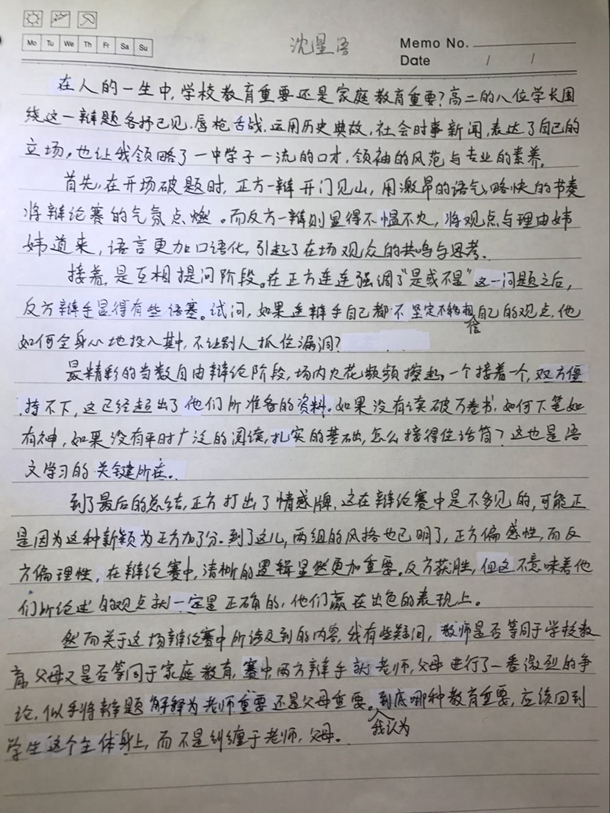 Mo Tu We Th Fr Sa Su
沈星语
Memo No.
Date / /
在人的一生中,学校教育重要还是家庭教育重要?高二的八位学长围
绕这一辩题各抒己见,唇枪舌战,运用历史典故,社会时事新闻,表达了自己的
立场,也让我领略了一中学子一流的口才,领袖的风范与专业的素养。
首先,在开场破题时,正方一辩开门见山,用激昂的语气,略快的节奏
将辩论赛的气氛点燃。而反方一辩则显得不愠不火,将观点与理由娓
娓道来,语言更加口语化,引起了在场观众的共鸣与思考。
接着,是互相提问阶段。在正方连连强调了"是或不是"这一问题之后,
反方辩手显得有些语塞。试问,如果连辩手自己都不坚定不移相信自己的观点,他
如何全身心地投入其中,不让别人抓住漏洞?
最精彩的当数自由辩论阶段,场内火花频频擦起,一个接着一个,双方僵
持不下,这已经超出了他们所准备的资料。如果没有读破万卷书,如何下笔如
有神,如果没有平时广泛的阅读,扎实的基础,怎么接得住话筒?这也是语
文学习的关键所在。
到了最后的总结,正方打出了情感牌,这在辩论赛中是不多见的,可能正
是因为这种新颖为正方加了分。到了这儿,两组的风格也已明了,正方偏感性,而反
方偏理性,在辩论赛中,清晰的逻辑显然更加重要。反方获胜,但这不意味着他
们所论述的观点就一定是正确的,他们赢在出色的表现上。
然而关于这场辩论赛中所涉及到的内容,我有些疑问,教师是否等同于学校教
育,父母又是否等同于家庭教育,赛中两方辩手就老师,父母进行了一番激烈的争
论,似乎将辩题解释为老师重要还是父母重要。我认为到底哪种教育重要,应该回到
学生这个主体身上,而不是纠缠于老师,父母。